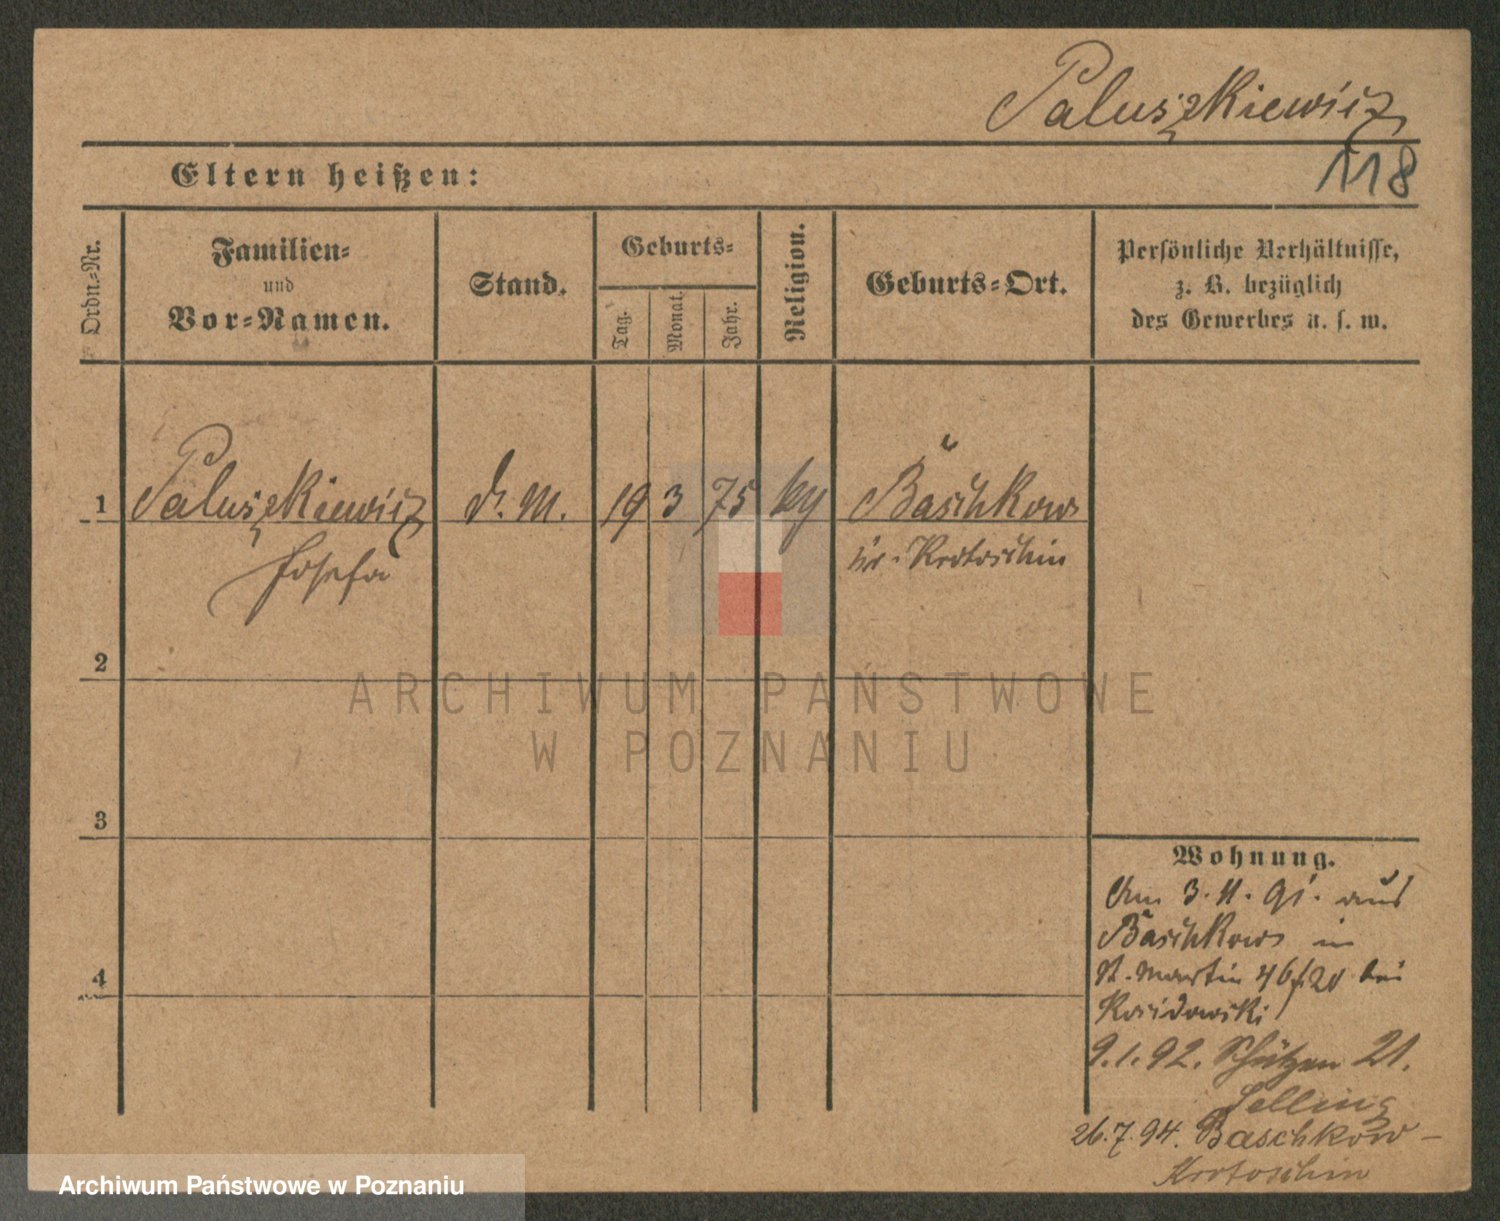 Paluszkiewicz
118
Eltern heißen:
Ordn.-Nr.
Familien-
und
Vor-Namen.
Stand.
Geburts-
Tag.
Monat.
Jahr.
Religion.
Geburts-Ort.
Persönliche Verhältnisse,
z. B. bezüglich
des Gewerbes u. s. w.
1 Paluszkiewicz d. M. 19 3 75 Baschkow
Josefa Kr. Krotoschin
2
3
4
Wohnung.
Am 3. 11. 91. aus
Baschkow in
St. Martin 46/20 bei
9.1.92. Schützen 21.
Selling
26.7.94. Baschkow -
Krotoschin
ARCHIWUM PAŃSTWOWE
W POZNANIU
Archiwum Państwowe w Poznaniu